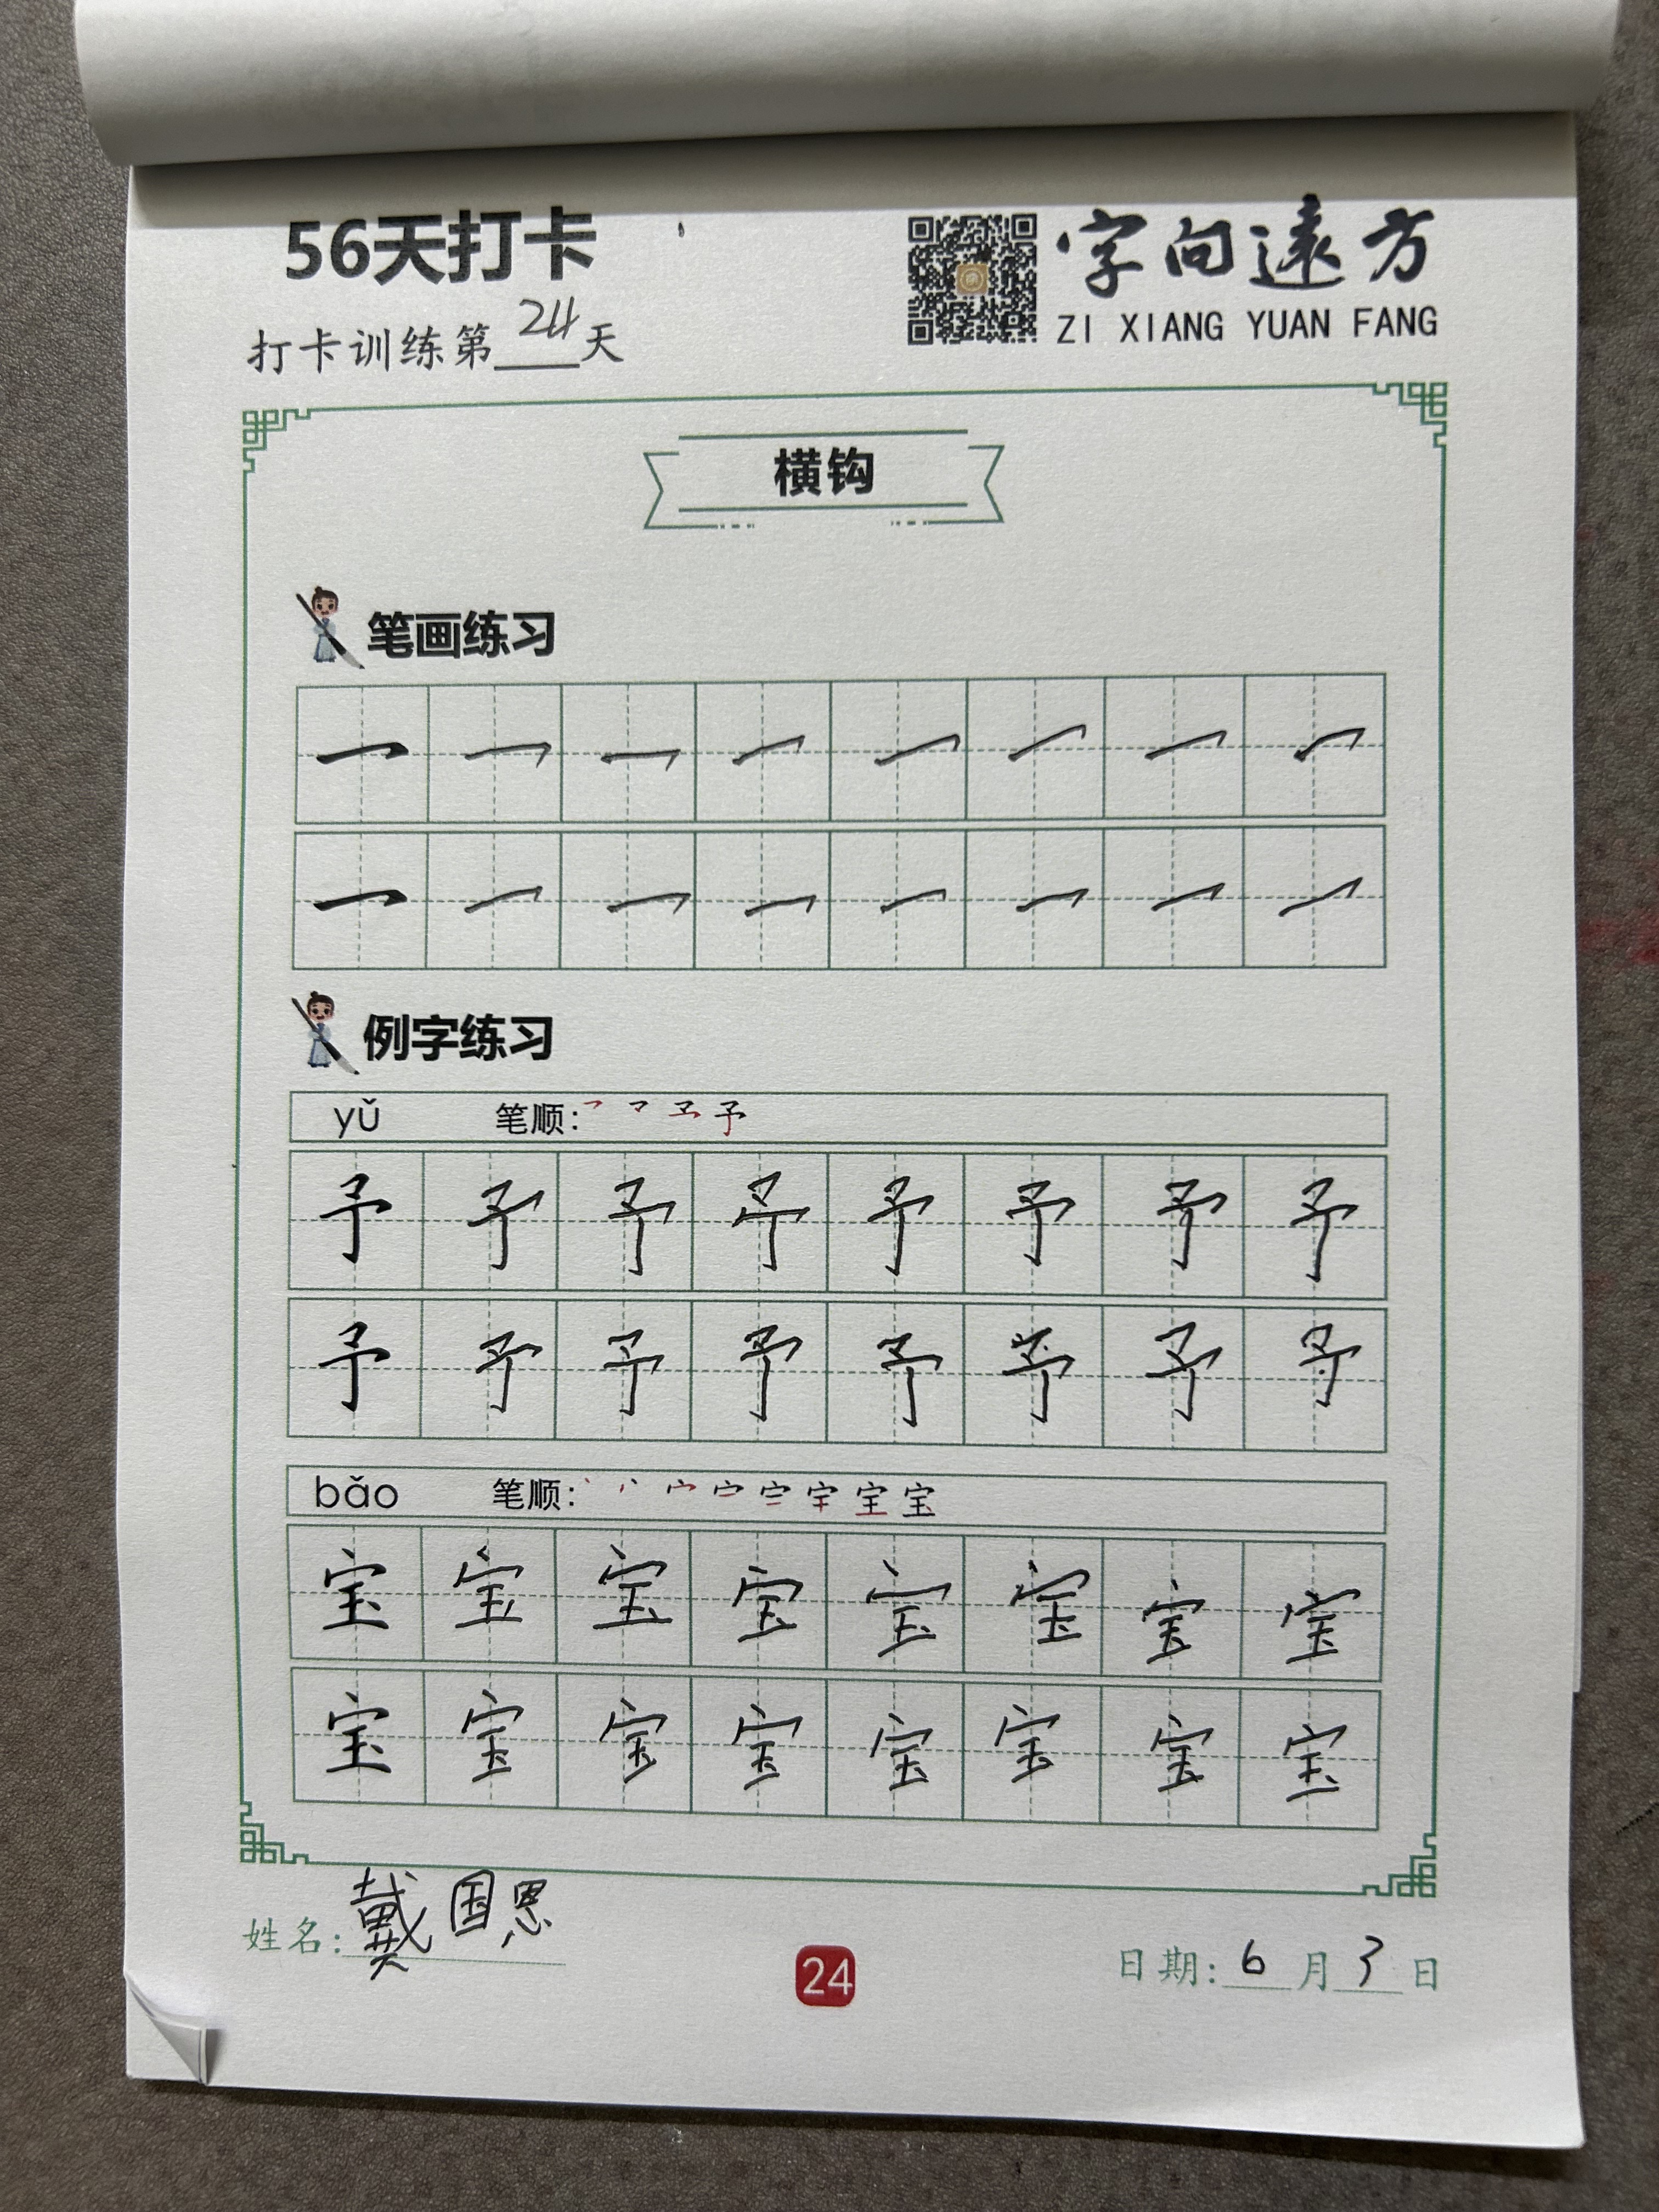 56天打卡
字向遠方
ZI XIANG YUAN FANG
打卡训练第24天
横钩
笔画练习
例字练习
yǔ 笔顺: 予
予 予 予 予 予 予 予 予
予 予 予 予 予 予 予 予
bǎo 笔顺: 宝
宝 宝 宝 宝 宝 宝 宝 宝
宝 宝 宝 宝 宝 宝 宝 宝
姓名: 戴国恩
24
日期: 6月3日